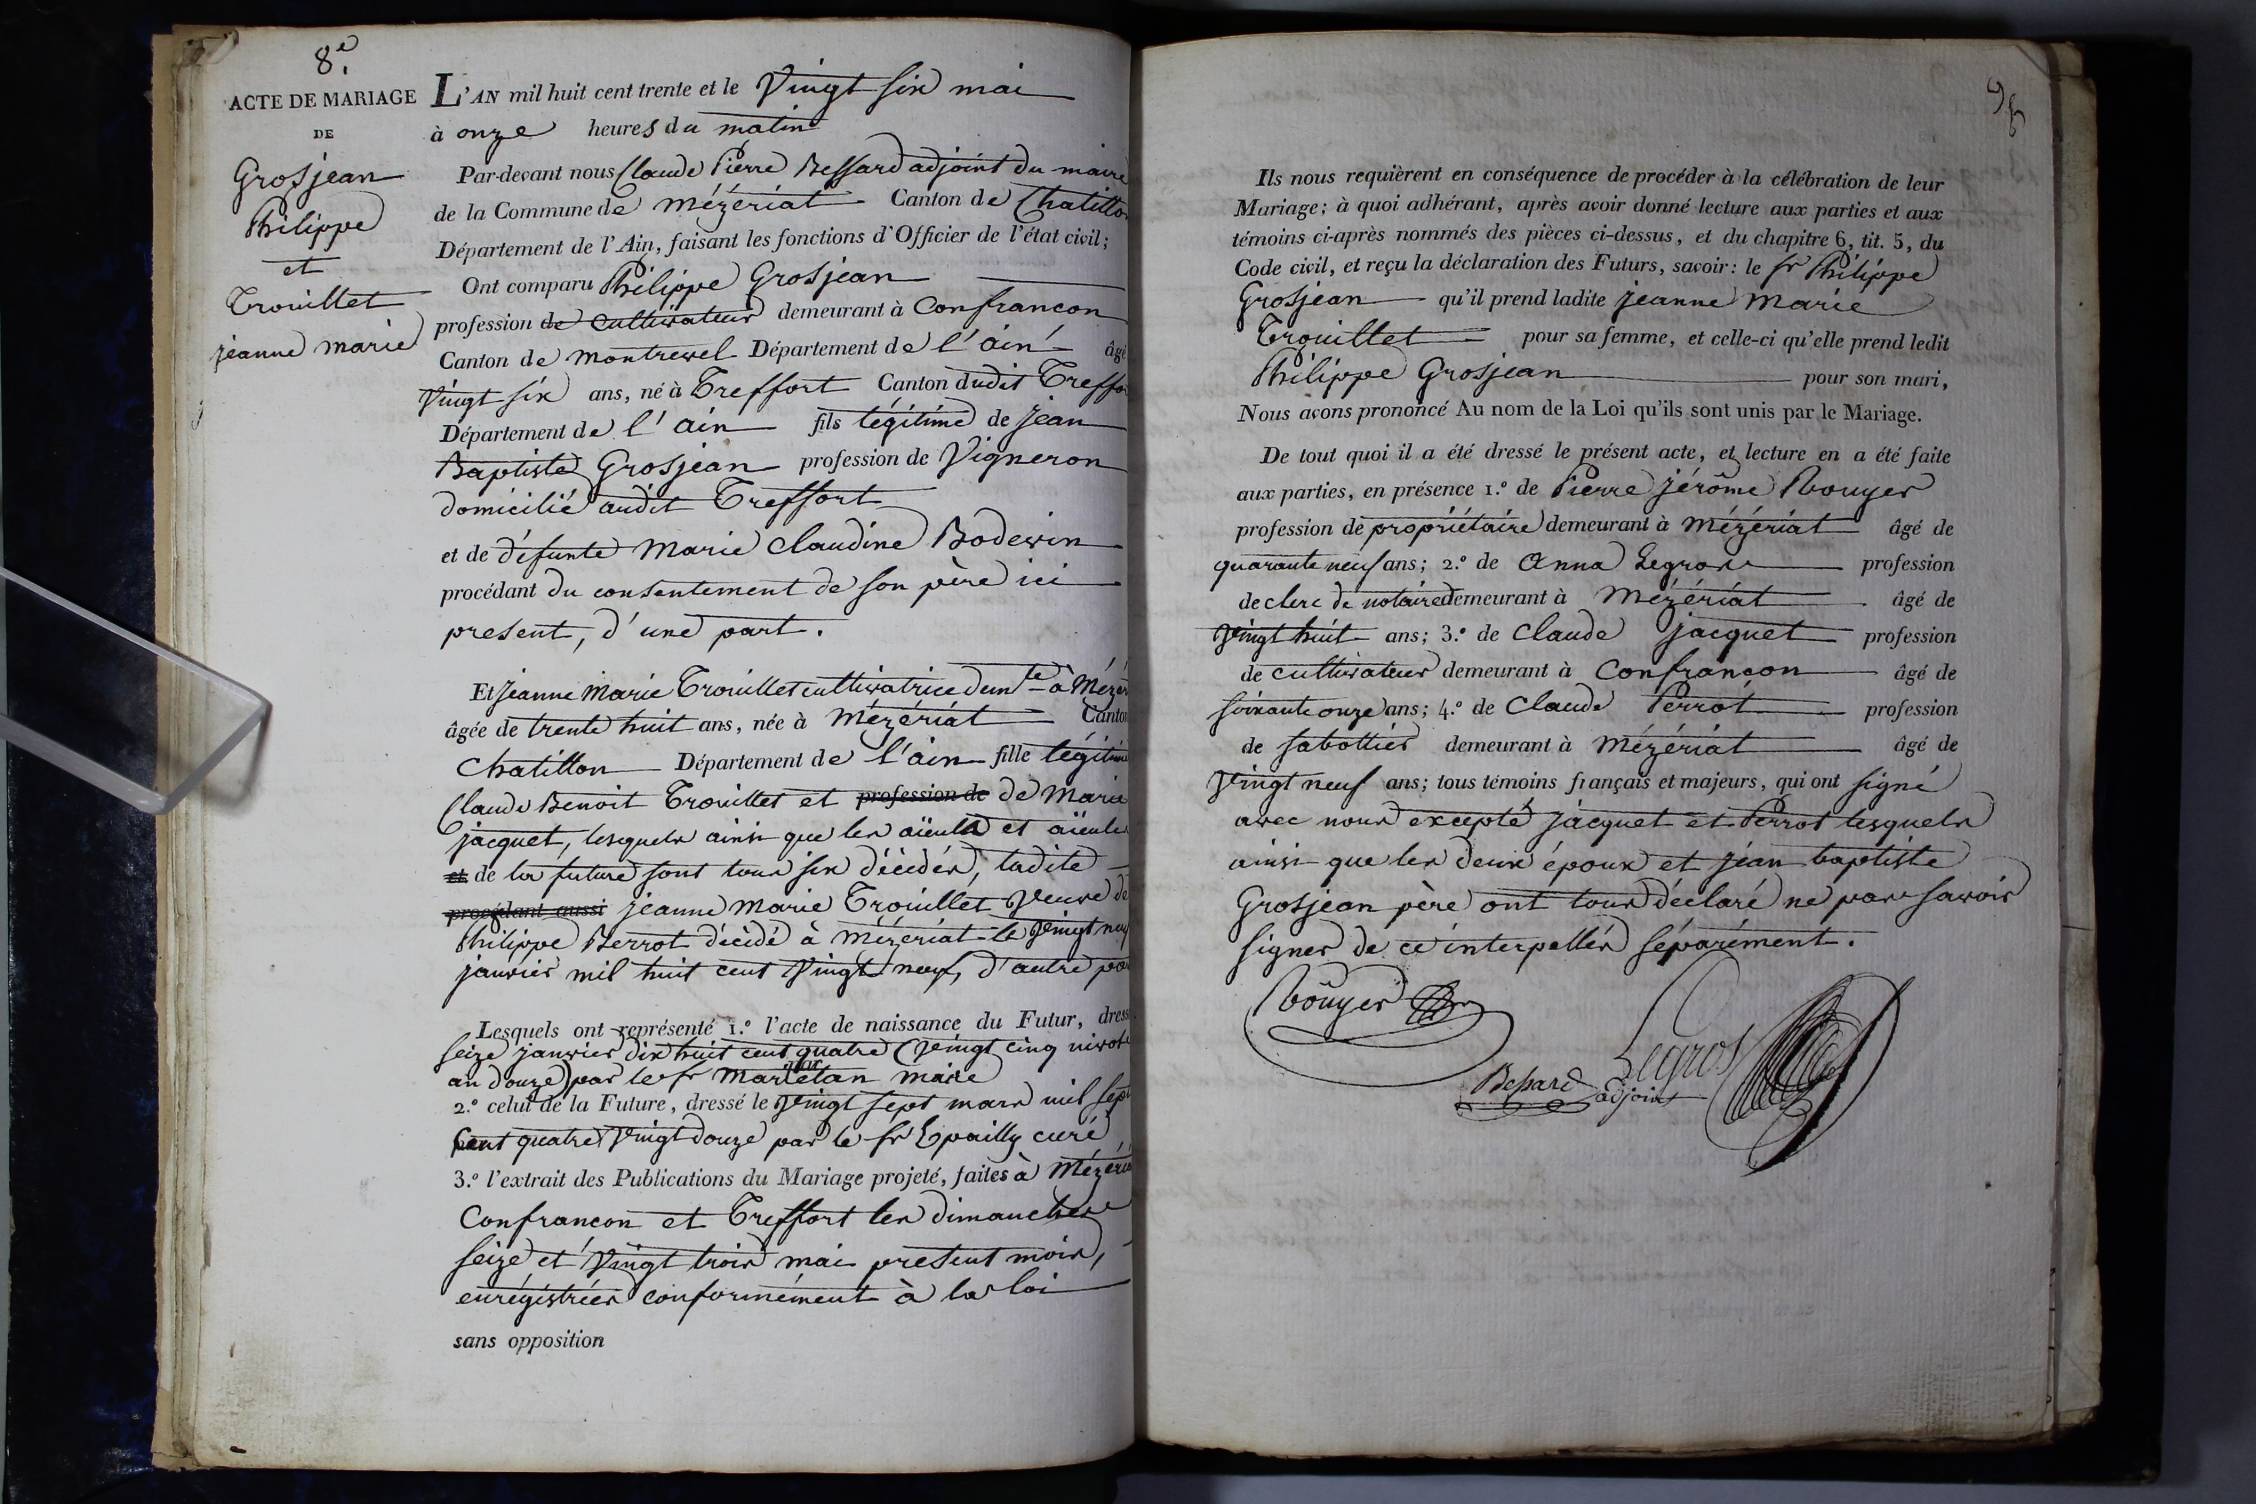 8.e
ACTE DE MARIAGE
DE
Grosjean
Philippe
et
Trouillet
jeanne marie
L'AN mil huit cent trente et le Vingt six mai
à onze heures du matin
Par-devant nous Claude Pierre Bessard adjoint du maire
de la Commune de mézériat Canton de Chatillon
Département de l'Ain, faisant les fonctions d'Officier de l'état civil;
Ont comparu Philippe Grosjean
profession de Cultivateur demeurant à Confrancon
Canton de montrevel Département de l'ain âgé
Vingt six ans, né à Treffort Canton dudit Treffo
Département de l'ain fils légitime de jean
Baptiste Grosjean profession de Vigneron
domicilié audit Treffort
et de défunte Marie Claudine Bodewin
procédant du consentement de son père ici
present, d'une part.
Et jeanne Marie Trouillet cultivatrice demte à Mézér
âgée de trente huit ans, née à Mézériat Canton
Chatillon Département de l'ain fille légitime
Claude Benoit Trouillet et profession de de Marie
jacquet, lesquels ainsi que les aïeuls et aïeules
et de la future sont tous six décédés, ladite
procédant aussi jeanne Marie Trouillet Veuve de
Philippe Berrot décédé à mézériat le Vingt neuf
janvier mil huit cent Vingt neuf, d'autre par
Lesquels ont représenté 1.º l'acte de naissance du Futur, dress
seize janvier dix huit cent quatre (Vingt cinq nivose
an douze) par le sr maire
2.º celui de la Future, dressé le Vingt sept mars mil sept
Cent quatre Vingt douze par le sr Epailly curé
3.º l'extrait des Publications du Mariage projeté, faites à Mézéria
Confrancon et Treffort les dimanches
seize et Vingt trois mai present mois,
enrégistrées conformément à la loi
sans opposition
Ils nous requièrent en conséquence de procéder à la célébration de leur
Mariage; à quoi adhérant, après avoir donné lecture aux parties et aux
témoins ci-après nommés des pièces ci-dessus, et du chapitre 6, tit. 5, du
Code civil, et reçu la déclaration des Futurs, savoir: le sr Philippe
Grosjean qu'il prend ladite jeanne Marie
Trouillet pour sa femme, et celle-ci qu'elle prend ledit
Philippe Grosjean pour son mari,
Nous avons prononcé Au nom de la Loi qu'ils sont unis par le Mariage.
De tout quoi il a été dressé le présent acte, et lecture en a été faite
aux parties, en présence 1.º de Pierre jérôme Rouyer
profession de propriétaire demeurant à Mézériat âgé de
quarante neuf ans; 2.º de Anna Legros profession
de clerc de notaire demeurant à Mézériat âgé de
Vingt huit ans; 3.º de Claude jacquet profession
de cultivateur demeurant à Confrancon âgé de
soixante onze ans; 4.º de Claude Perrot profession
de sabottier demeurant à Mézériat âgé de
Vingt neuf ans; tous témoins français et majeurs, qui ont signé
avec nous excepté jacquet et Perrot lesquels
ainsi que les deux époux et jean baptiste
Grosjean père ont tous déclaré ne pas savoir
signer de ce interpellés séparément.
Rouyer
Legros
Bessard adjoint